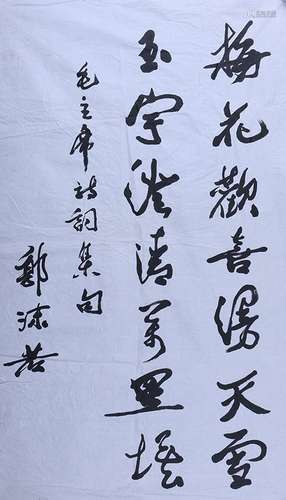 梅花歡喜漫天雪
玉宇澄清萬里埃
毛主席詩詞集句
郭沫若